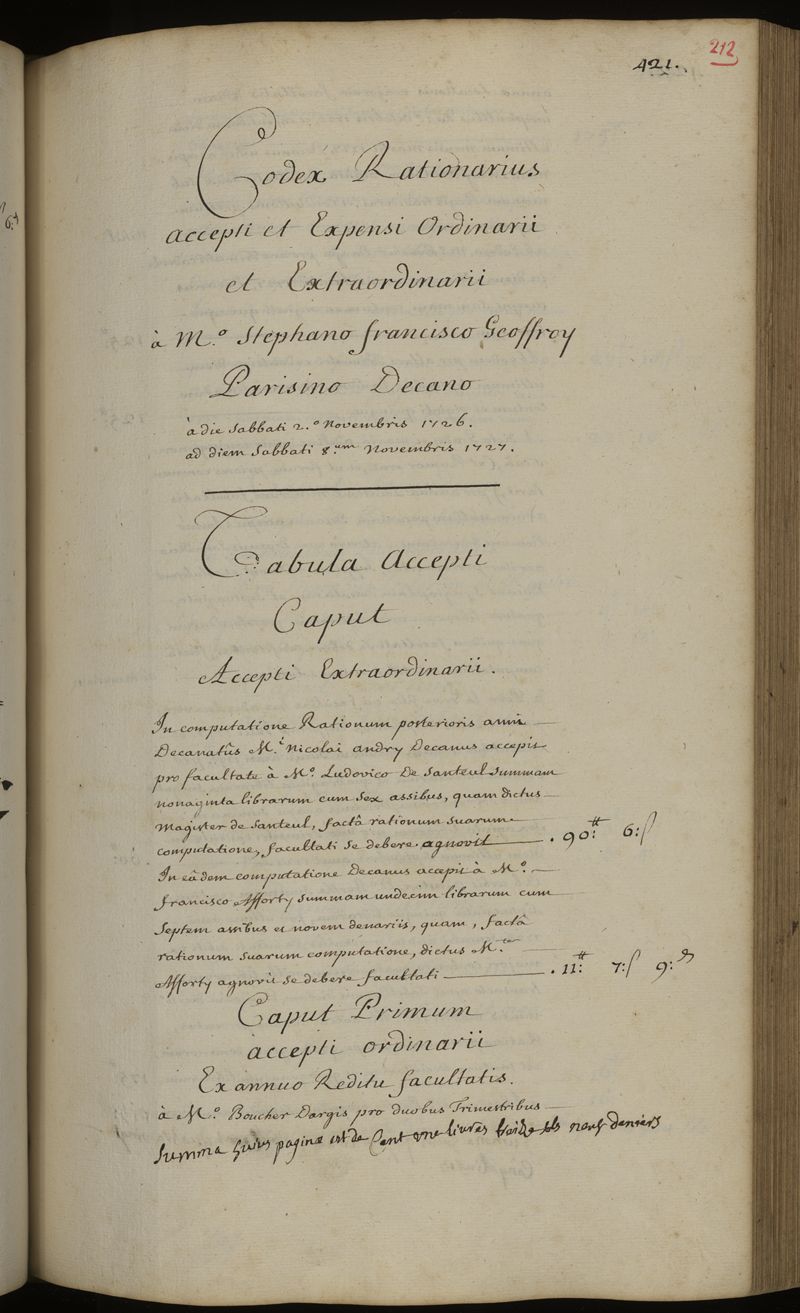 421.
212
Codex Rationarius
accepti et Expensi Ordinarii
et Extraordinarii
à M.º Stephano francisco Geoffroy
Parisino Decano
à die Sabbati 2.º Novembris 1726.
ad diem Sabbati 8.um Novembris 1727.
Tabula Accepti
Caput
Accepti Extraordinarii.
In computatione Rationum posterioris anni
Decanatûs M.i Nicolai andry Decanus accepit
pro facultate à M.º Ludovico De Santeul summam
nonaginta librarum cum sex assibus, quam dictus
Magister de Santeul, factâ rationum suarum
computatione, facultati se debere agnovit. 90:tt 6:ſ
In eâdem computatione Decanus accepit à M.º
francisco Afforty summam undecim librarum cum
septem assibus et novem denariis, quam, factâ
rationum suarum computatione, dictus M.ter
Afforty agnovit se debere facultati. 11:tt 7:ſ 9:d
Caput Primum
accepti ordinarii
Ex annuo Reditu facultatis.
à M.º Boucher Dargis pro duobus Trimestribus
Summa huius paginæ est de Cent une livres treize sols neuf deniers